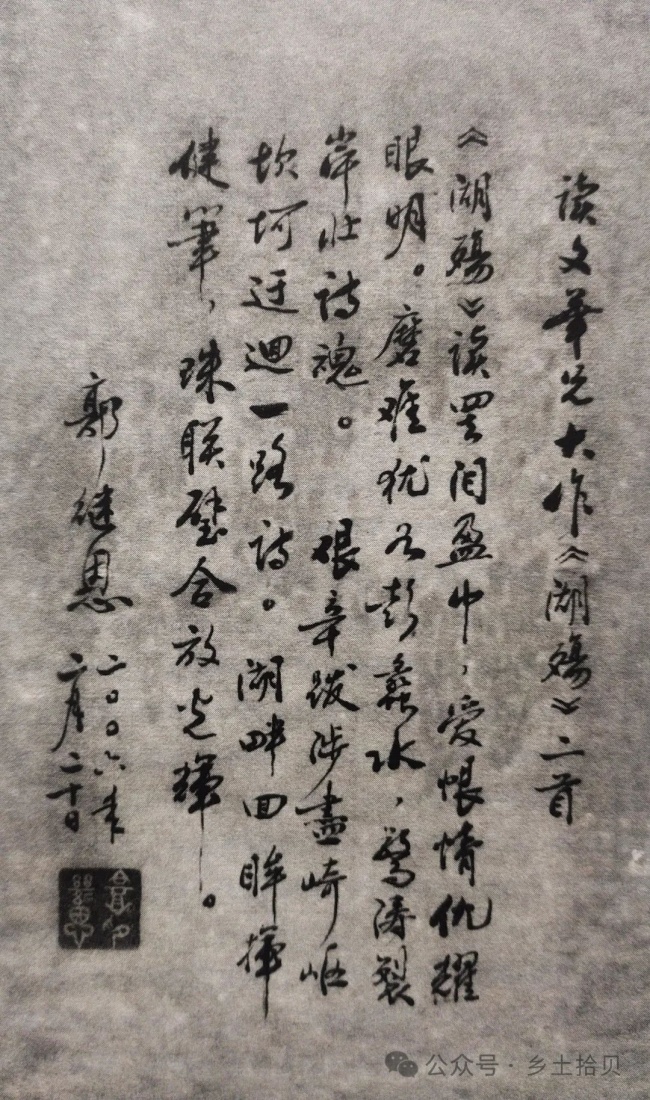 读文華兄大作《湖殇》二首
《湖殇》读罢泪盈巾，爱恨情仇耀
眼明。磨难犹如彭蠡水，惊涛裂
岸壮诗魂。 艰辛跋涉盡崎岖
坎坷迂迴一路诗。湖畔回眸揮
健筆，珠联璧合放光輝。
郭继恩
二〇〇六年
二月二十日
公众号 · 乡土拾贝